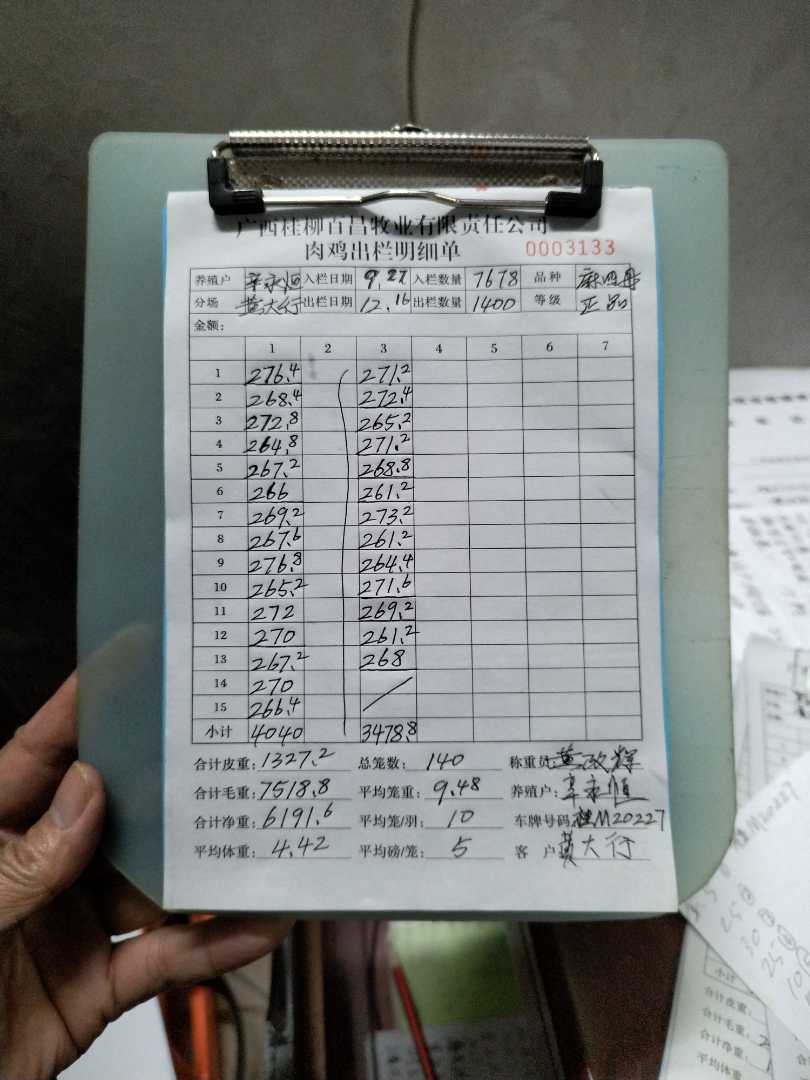 广西桂柳百昌牧业有限责任公司
肉鸡出栏明细单 0003133
养殖户 辛永恒 入栏日期 9.27 入栏数量 7678 品种
分场 黄大行 出栏日期 12.16 出栏数量 1400 等级 正品
金额：
1 2 3 4 5 6 7
1 276.4 271.2
2 268.4 272.4
3 272.8 265.2
4 264.8 271.2
5 267.2 268.8
6 266 261.2
7 269.2 273.2
8 267.6 261.2
9 276.8 264.4
10 265.2 271.6
11 272 269.2
12 270 261.2
13 267.2 268
14 270
15 266.4
小计 4040 3478.8
合计皮重：1327.2 总笼数：140 称重员：黄政辉
合计毛重：7518.8 平均笼重：9.48 养殖户：辛永恒
合计净重：6191.6 平均笼/羽：10 车牌号码：桂M20227
平均体重：4.42 平均磅/笼：5 客户：黄大行
小计
合计皮重：
合计毛重：
合计净重：
平均体重：